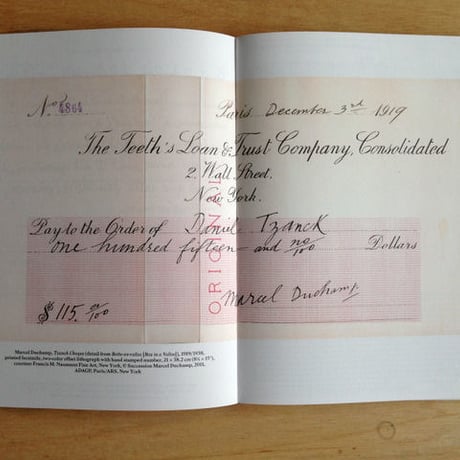 No 4864
Paris December 3rd 1919
The Teeth's Loan & Trust Company, Consolidated
2. Wall Street.
New York.
Pay to the Order of Daniel Tzanck
one hundred fifteen and no/100 Dollars
$ 115. oo/100
Marcel Duchamp.
ORIGINAL
Marcel Duchamp, Tzanck Cheque (detail from Boîte-en-valise [Box in a Valise]), 1919/1938,
printed facsimile, two-color offset lithograph with hand stamped number, 21 × 38.2 cm (8¼ × 15"),
courtesy Francis M. Naumann Fine Art, New York, © Succession Marcel Duchamp, 2011,
ADAGP, Paris/ARS, New York